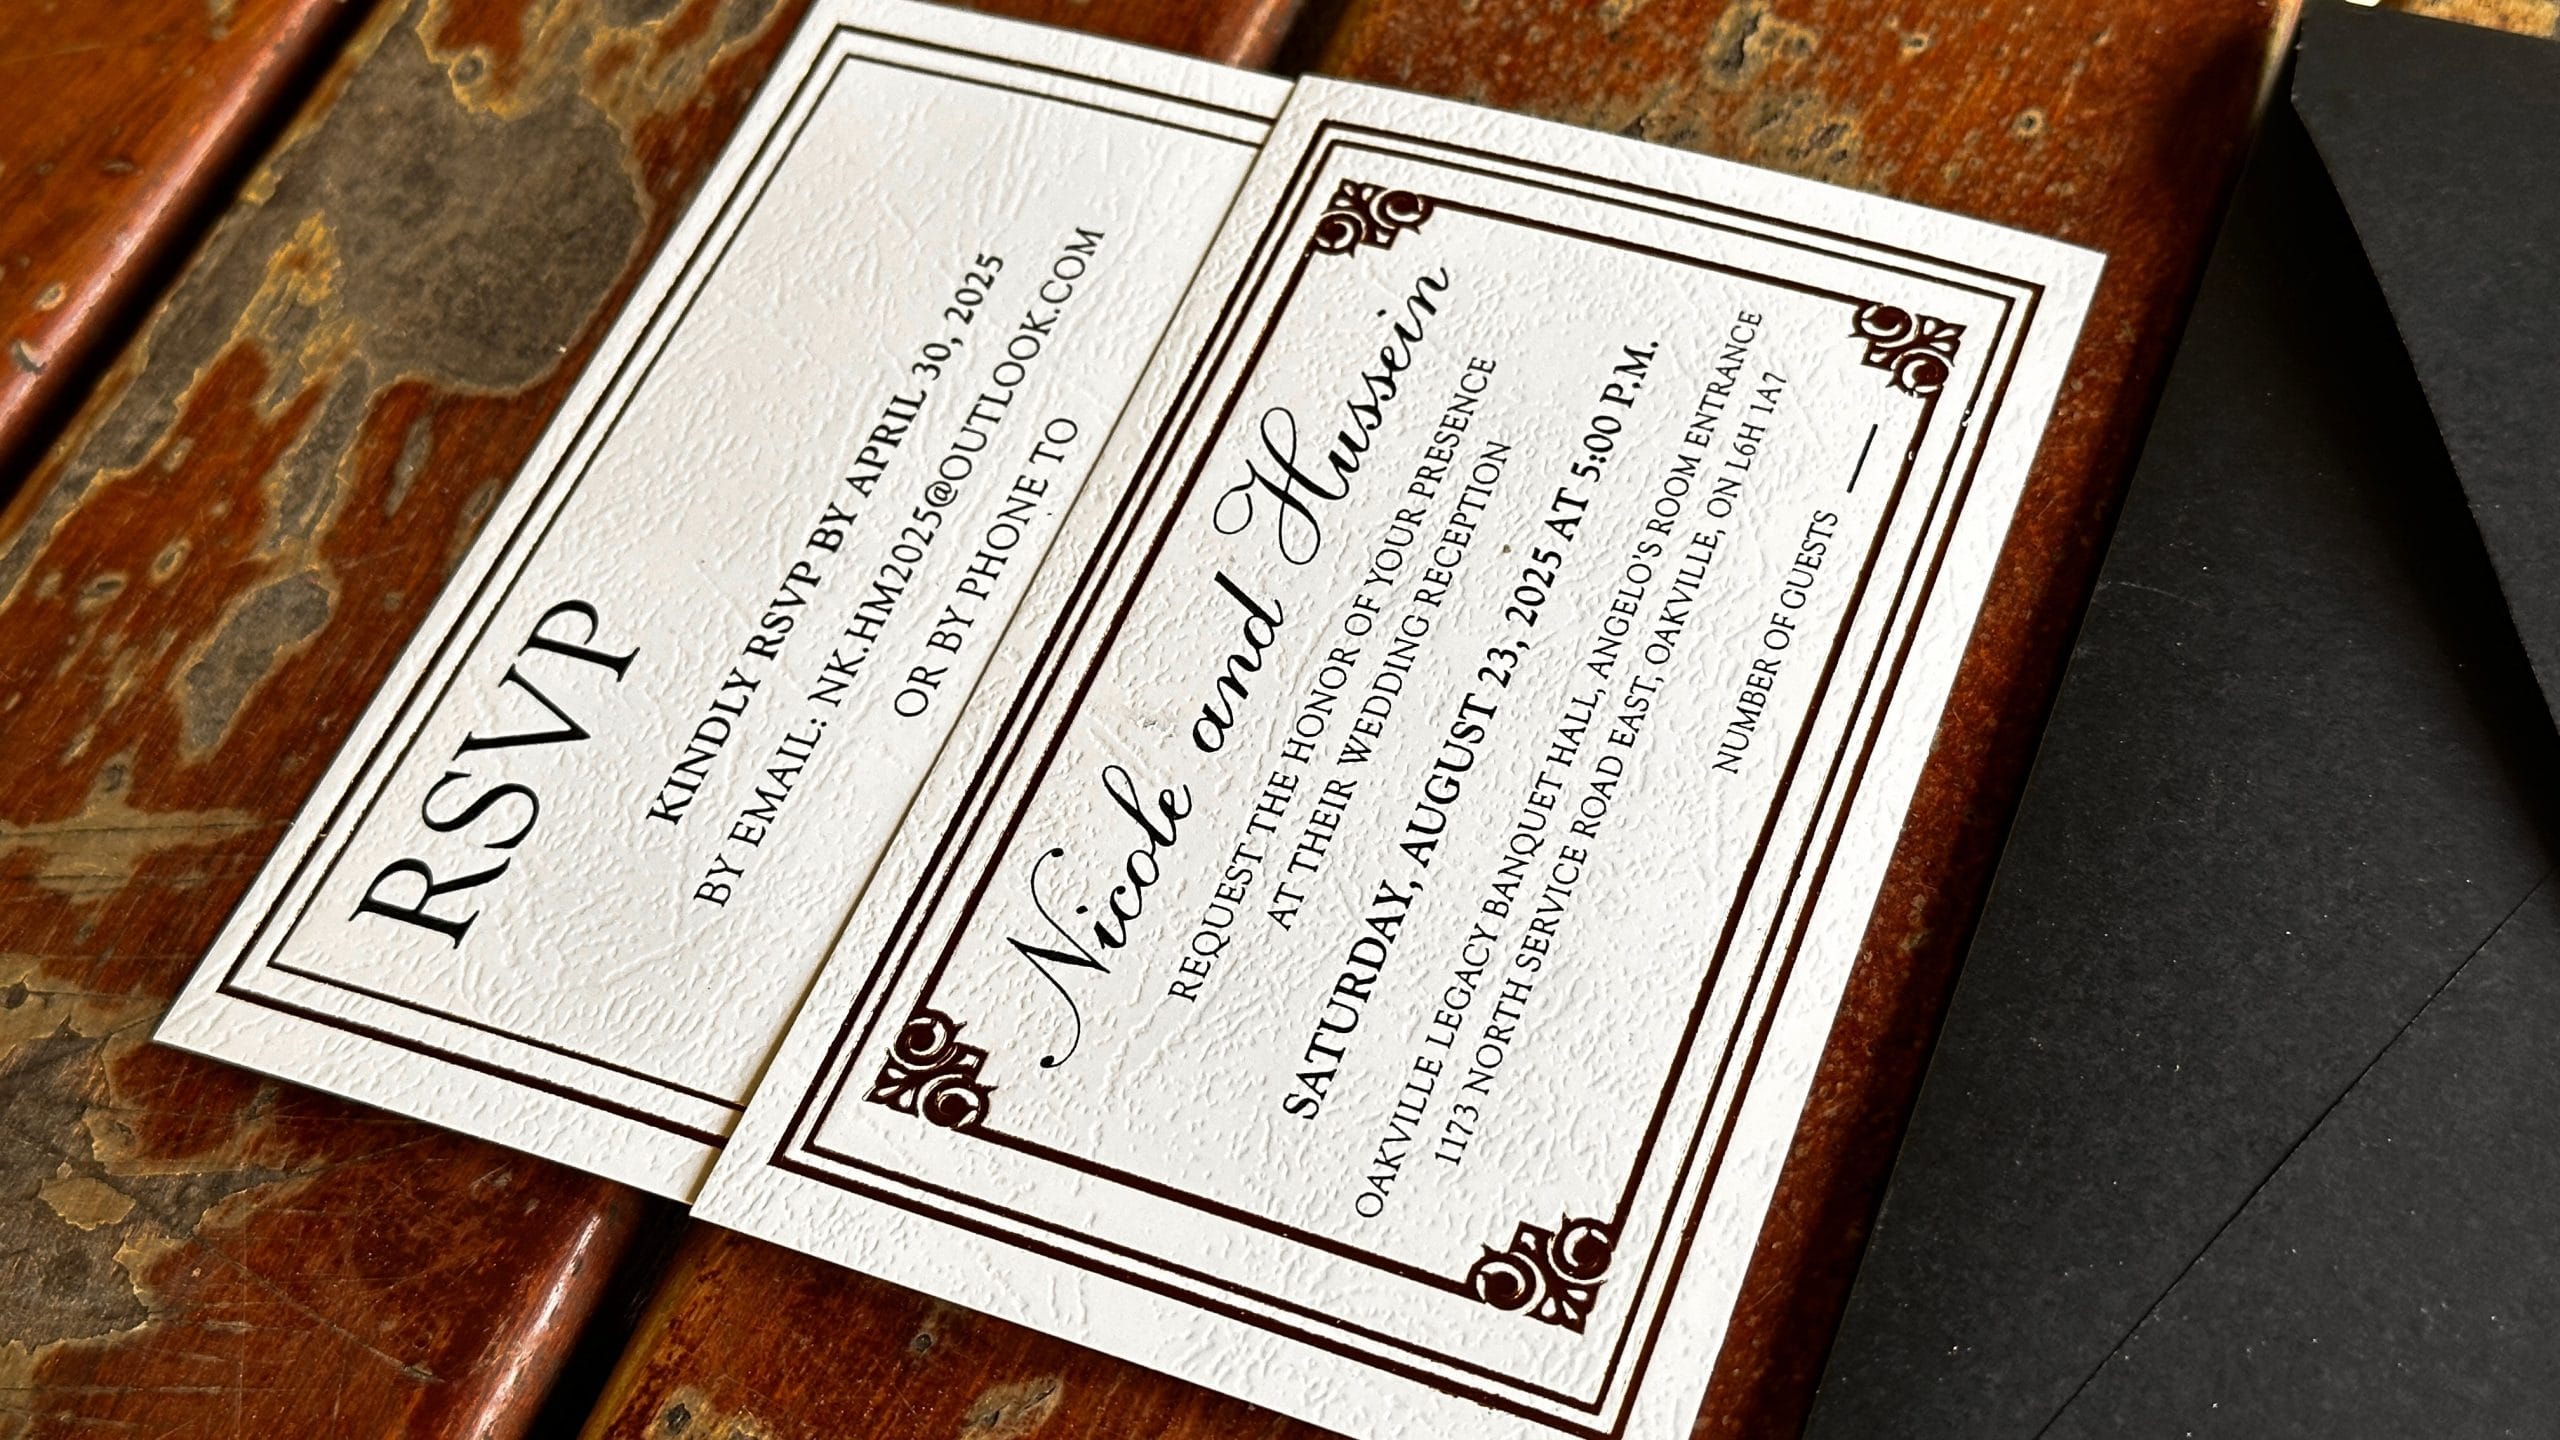 RSVP
KINDLY RSVP BY APRIL 30, 2025
BY EMAIL: NK.HM2025@OUTLOOK.COM
OR BY PHONE TO
Nicole and Hussein
REQUEST THE HONOR OF YOUR PRESENCE
AT THEIR WEDDING RECEPTION
SATURDAY, AUGUST 23, 2025 AT 5:00 P.M.
OAKVILLE LEGACY BANQUET HALL, ANGELO'S ROOM ENTRANCE
1173 NORTH SERVICE ROAD EAST, OAKVILLE, ON L6H 1A7
NUMBER OF GUESTS __